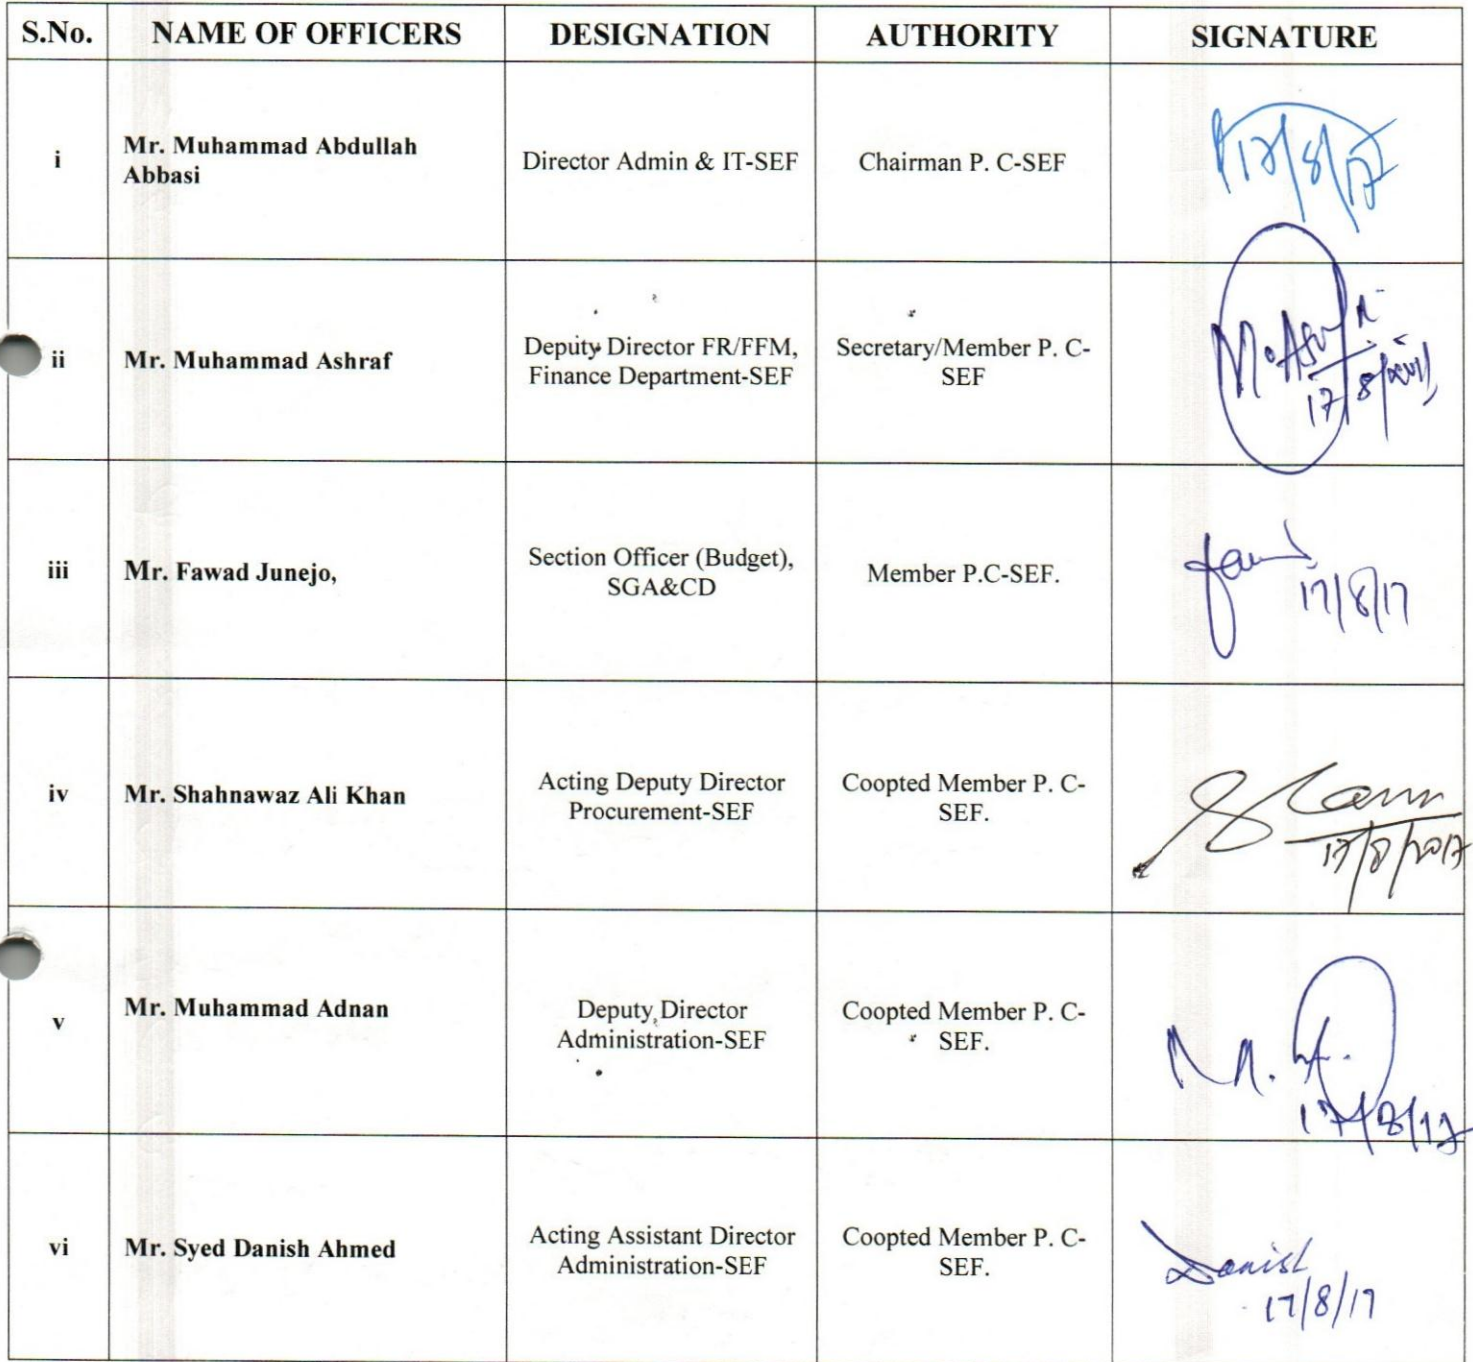 S.No. NAME OF OFFICERS DESIGNATION AUTHORITY SIGNATURE
i
Mr. Muhammad Abdullah
Abbasi
Director Admin & IT-SEF
Chairman P. C-SEF
17/8/17
ii
Mr. Muhammad Ashraf
Deputy Director FR/FFM,
Finance Department-SEF
Secretary/Member P. C-
SEF
17/8/2017
iii
Mr. Fawad Junejo,
Section Officer (Budget),
SGA&CD
Member P.C-SEF.
17/8/17
iv
Mr. Shahnawaz Ali Khan
Acting Deputy Director
Procurement-SEF
Coopted Member P. C-
SEF.
17/8/2017
v
Mr. Muhammad Adnan
Deputy Director
Administration-SEF
Coopted Member P. C-
SEF.
17/8/17
vi
Mr. Syed Danish Ahmed
Acting Assistant Director
Administration-SEF
Coopted Member P. C-
SEF.
Danish
17/8/17